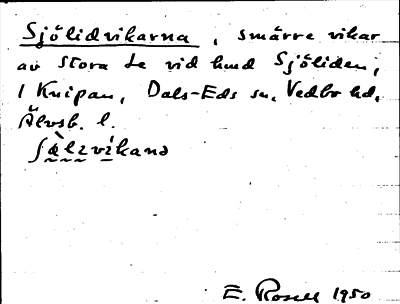 Sjölidvikarna, smärre vikar
av Stora Le vid hmd Sjöliden,
i Knipan, Dals-Eds sn, Vedbo hd,
Älvsb. l.
ʃὰlɪvikanə
E. Rosell 1950